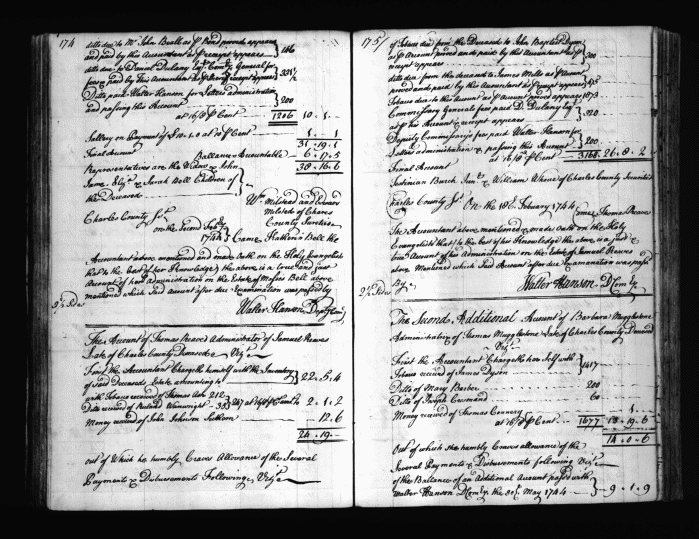 174
ditto due to Mr. John Beall as pr. Bond proved appears
and paid by this Accountant as pr. receipt appears } 146
ditto due to Daniel Dulany Esqr. Comry. General for
fees & paid by this Accountant as pr. receipt appears } 331½
Ditto paid Walter Hanson for Letters administration
and passing this Account } 200
at 16/8 pr. Cent 1206 10 . 1 . –
Sallery on Payment of at 10 pr. Cent 1 . – . 1
Final Account 31 . 19 . 1
Ballance Accountable – 6 . 17 . 5
Representatives are the Widow & John 38 . 16 . 6
Jane Eliza. & Sarah Bell Children of
the Deceased
Wm. Milstead and Edward
Milsted of Charles
County Sureties
Charles County Sct.
on the Second Febry.
1744 } Came Katherin Bell the
Accountant above mentioned and made oath on the Holy Evangelists
that to the best of her Knowledge the above is a true and just
Account of her Administration on the Estate of Moses Bell above
mentioned which said Account after due Examination was passed by
Walter Hanson Depty Comry
2½ Sides
The Account of Thomas Reeves Administrator of Samuel Reeves
Late of Charles County Deceased Vizt.
First the Accountant Chargeth himself with the Inventory
of said Deceased Estate amounting to } 22 . 5 . 4
with Tobacco received of Thomas 212
Ditto received of Richard Wainwright – 35 } 247 at 16/8 pr. Cent 2 . 1 . 2
Money received of John Johnson – 12 . 6
24 . 19 . –
out of Which he humbly Craves Allowance of the Several
Payments & Disbursements Following Vizt.
175
of Tobacco due from the Deceased to John Baptist Dyson
as pr. Account proved and paid by this Accountant as pr.
receipt appears } 300
ditto due from the deceased to James Mills as pr. Account
proved and paid by this Accountant as pr. receipt appears
Tobacco due to this Accountant as pr. Account proved appears 1873
Commissary Generals fees paid D. Dulany Esqr.
as pr. his Account & receipt appears
Deputy Commissarys fees paid Walter Hanson for
Letters administration & passing this Account } 200
at 16/8 pr. Cent 3168 26 . 8 . 2
Final Account
Justinian Burch Junr. & William of Charles County Sureties
Charles County Sct. On the 18th February 1744
Came Thomas Reeves
The Accountant above mentioned & made oath on the Holy
Evangelists that to the best of his Knowledge the above is a just &
true Account of his Administration on the Estate of Samuel Reeves
above Mentioned which said Account after due examination was passed
By
Walter Hanson D Comry
2½ Sides
The Second Additional Account of Barbara Mugglestone
Administratrix of Thomas Mugglestone Late of Charles County Deceased
Vizt.
First the Accountant Chargeth her self with
Tobacco received of James Dyson } 1417
Ditto of Mary Barber 200
Ditto of Joseph 60
Money received of Thomas Connery 1 . –
at 16/8 pr. Cent 1677 13 . 19 . 6
14 . 0 . 6
out of which she humbly Craves allowance of the
Several Payments & Disbursements following Vizt.
of the Ballance of an Additional Account passed with
Walter Hanson D Comry. the May 1744 } 9 . 1 . 9